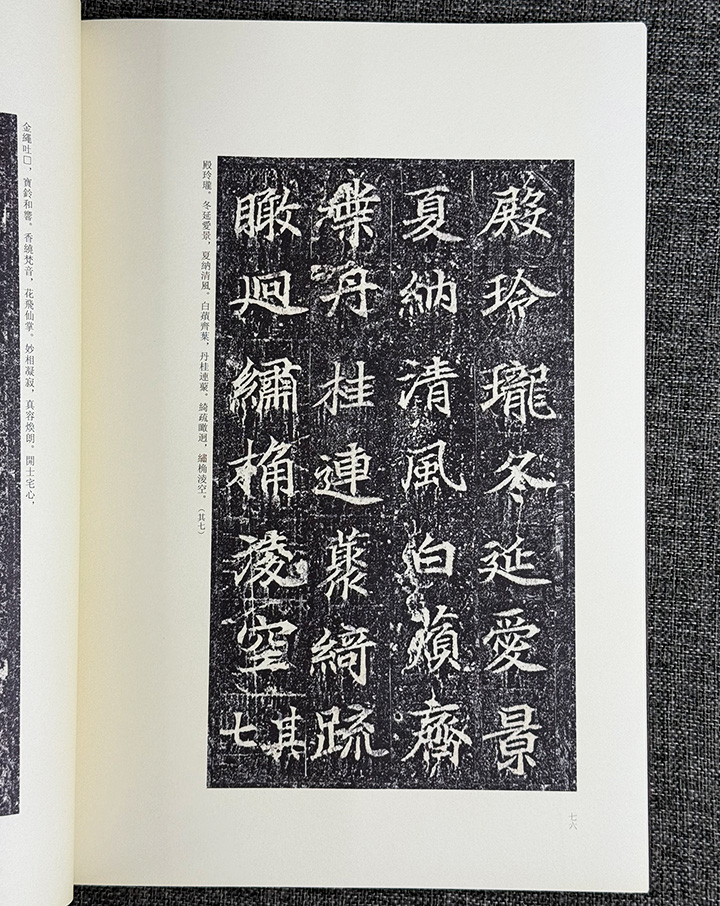 殿玲瓏冬延愛景
夏納清風白蘋齊
葉丹桂連蘂綺疏
瞰迥繡桷淩空其七
殿玲瓏。冬延愛景，夏納清風。白蘋齊葉，丹桂連蘂。綺疏瞰迥，繡桷淩空。（其七）
金繩吐□，寶鈴和響。香繞梵音，花飛仙掌。妙相凝寂，真容煥朗。開士宅心，
七六